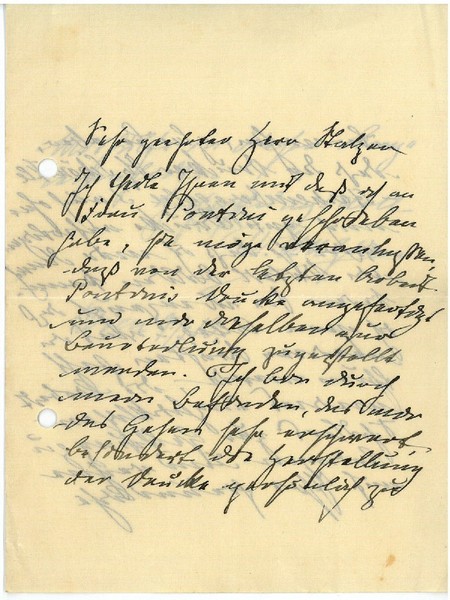 Sehr geehrter Herr Stalzer
Ich theile Ihnen mit daß ich an
Frau Pontini geschrieben
habe, sie möge veranlassen
daß von der letzten Arbeit
Pontinis Drucke angefertigt
und mir dieselben zur
Beurteilung zugestellt
werden. Ich bin durch
mein Befinden, das mir
das Gehen sehr erschwert
behindert die Herstellung
der Drucke persönlich zu